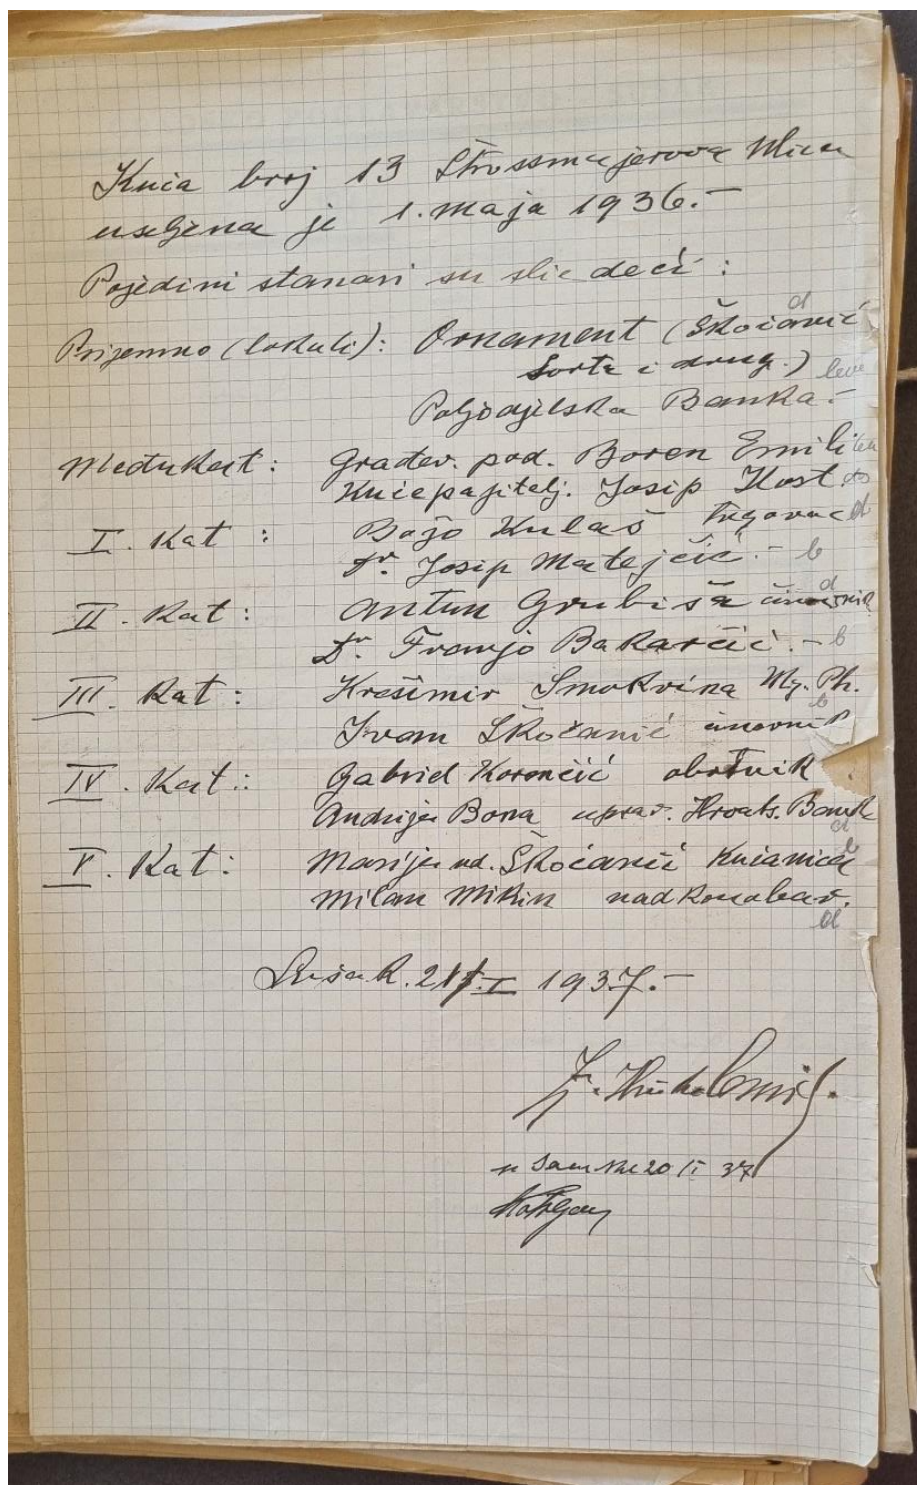 Kuća broj 13 Štrossmajerova Ulica
useljena je 1. maja 1936.-
Pojedini stanari su sliedeći :
Prizemno (lokali): Ornament (Škočanić d
Sorta i drug.) levo
Poljodjelska Banka.-
Međukat : Građev. pod. Boren Emil
Kućepazitelj. Josip Host
I. Kat : Božo Kulaš trgovac d
Dr. Josip Matejčić.- b
II. Kat : Antun Grubiša činovnik d
Dr. Franjo Bakarčić.- b
III. Kat : Krešimir Smokvina Mg. Ph.
Ivan Škočanić činovnik b
IV. Kat : Gabriel Korenčić obrtnik
Andrija Bona uprav. Hrvats. Bank d
V. Kat : Marija ud. Škočanić Kućanica b
Milan Mikin nadkonobar. d
Sušak. I 1937.-
u 20 I 37